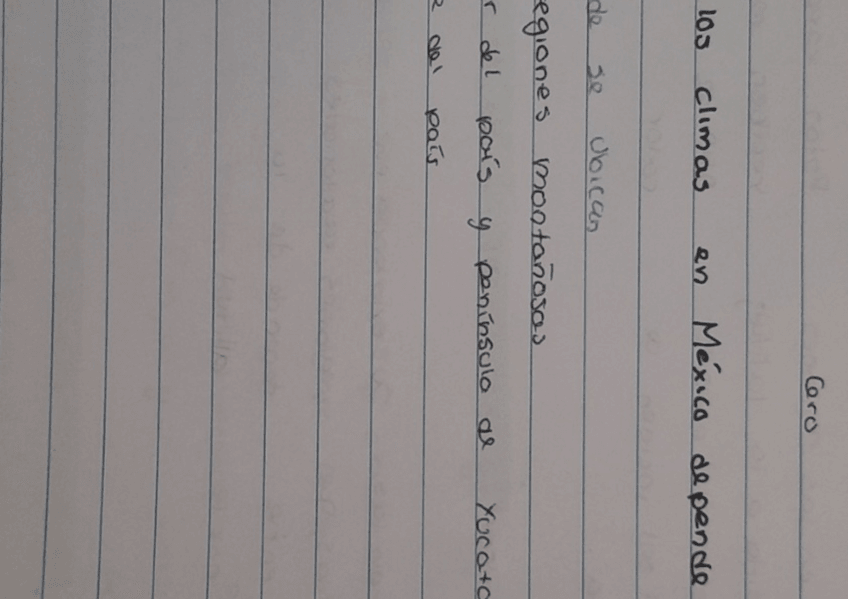 Caro
los climas en México depende
de se ubican
egiones montañosas
r del país y península de Yucata
e del país